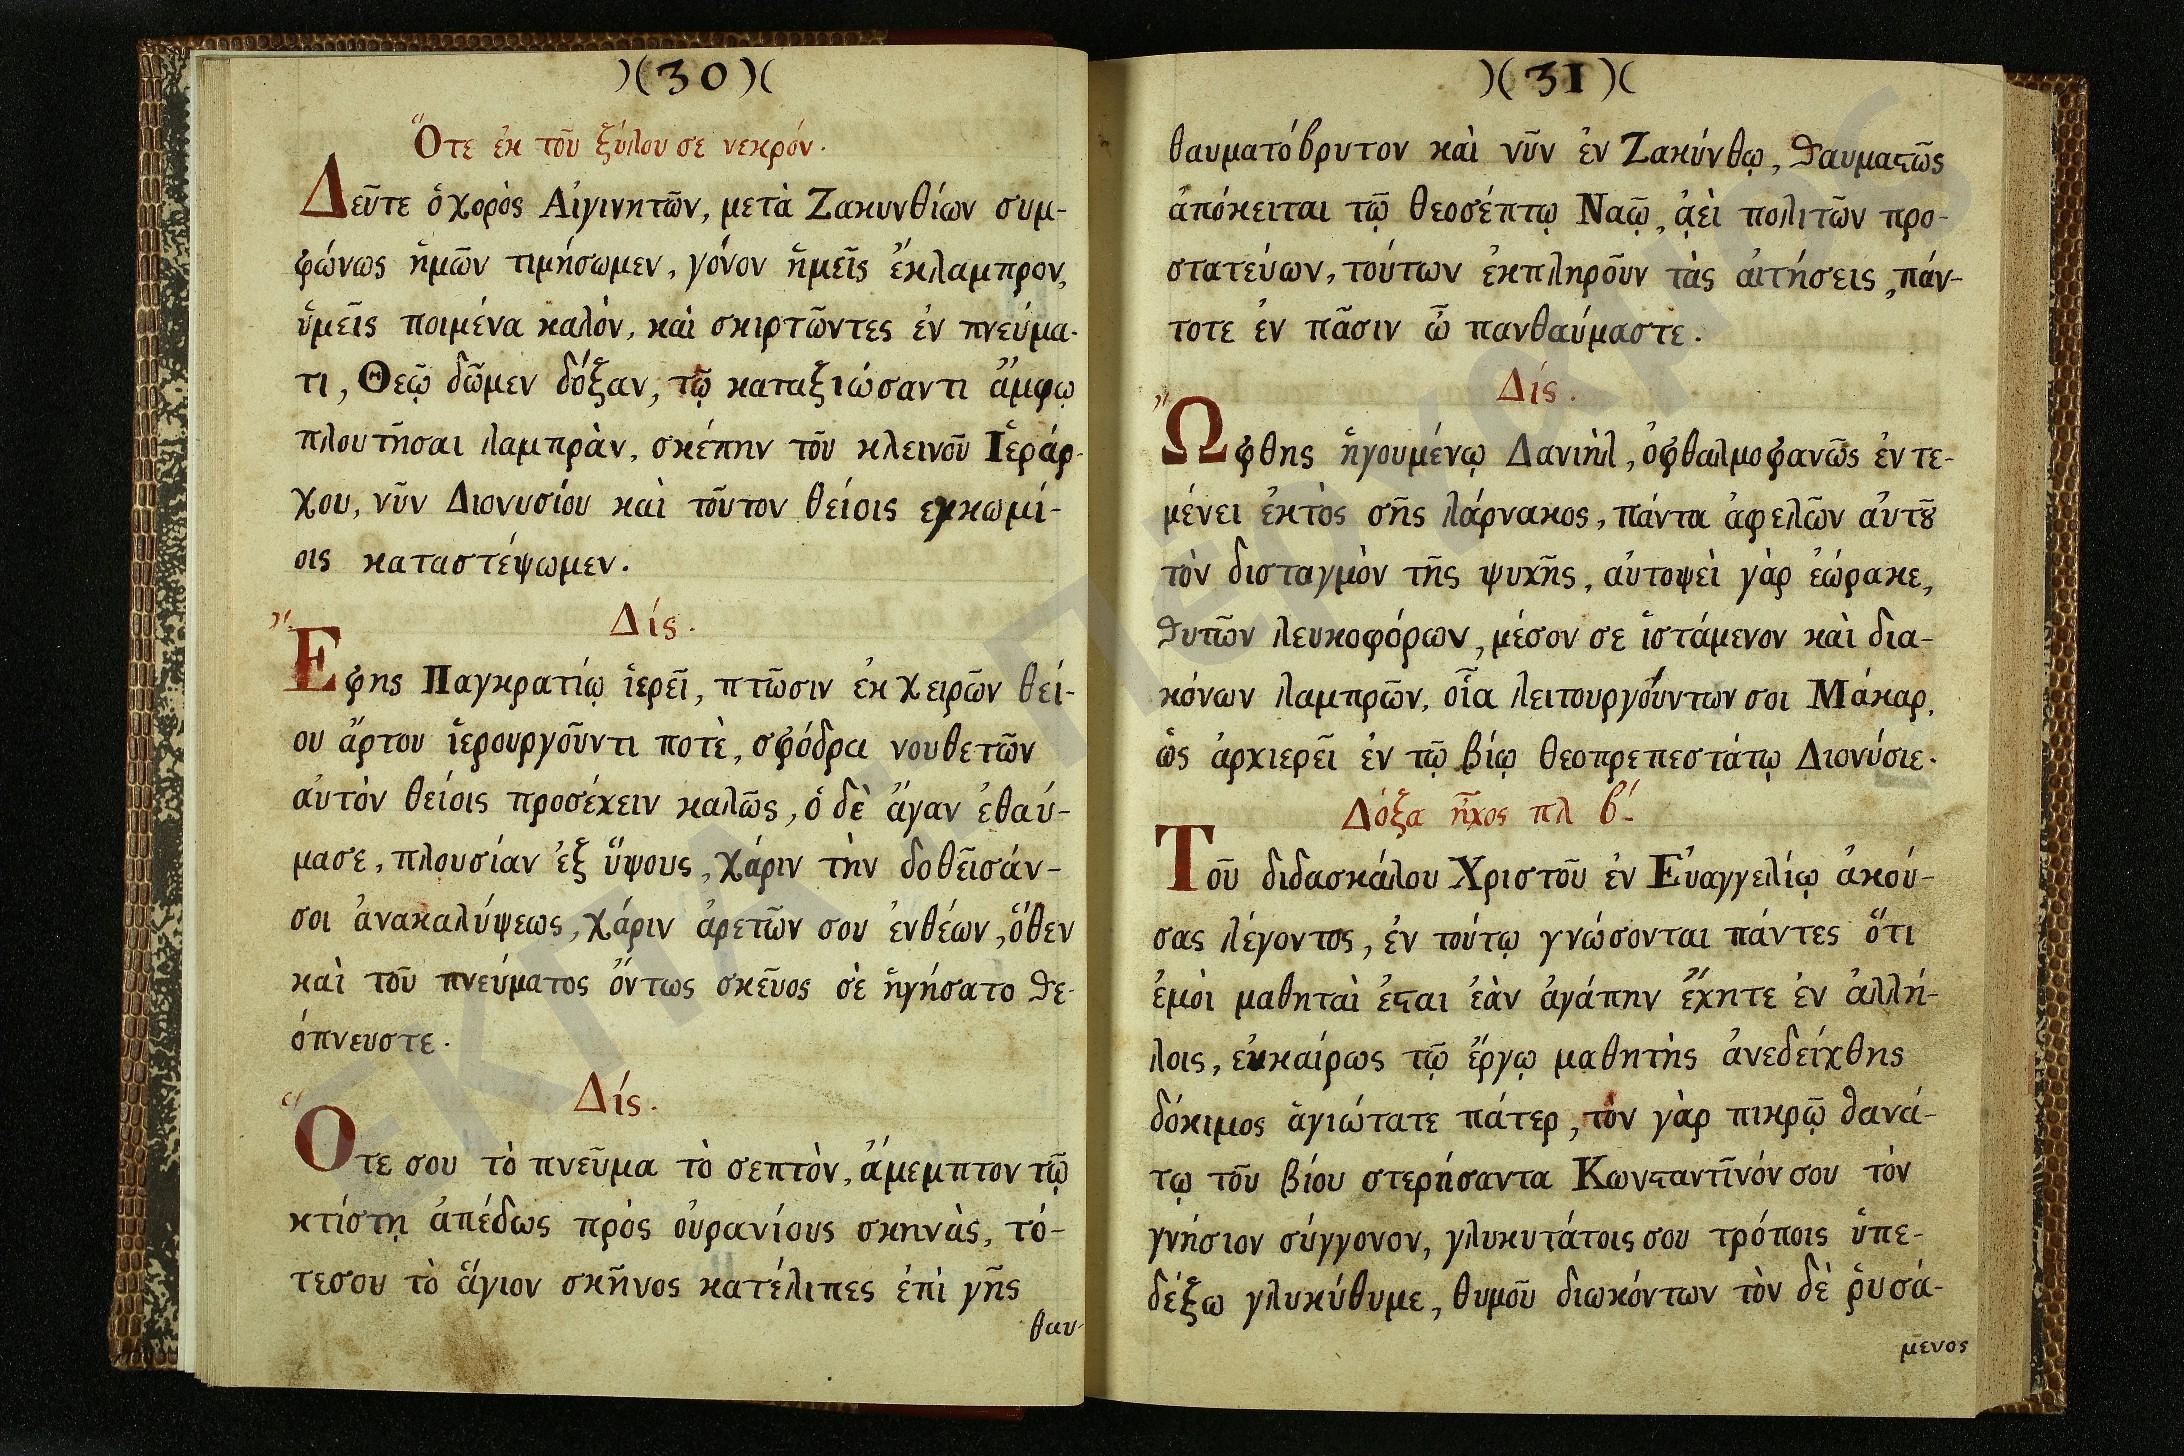 )(30)(
Ὅτε ἐκ τοῦ ξύλου σε νεκρόν.
Δεῦτε ὁ χορὸς Αἰγινητῶν, μετὰ Ζακυνθίων συμ-
φώνως ἡμῶν τιμήσωμεν, γόνον ἡμεῖς ἔκλαμπρον,
ὑμεῖς ποιμένα καλὸν, καὶ σκιρτῶντες ἐν πνεύμα-
τι, Θεῷ δῶμεν δόξαν, τῷ καταξιώσαντι ἄμφω
πλουτῆσαι λαμπρὰν, σκέπην τοῦ κλεινοῦ Ἱεράρ-
χου, νῦν Διονυσίου καὶ τοῦτον θείοις εγκωμί-
οις καταστέψωμεν.
Δίς.
Ἔφης Παγκρατίῳ ἱερεῖ, πτῶσιν ἐκ χειρῶν θεί-
ου ἄρτου ἱερουργοῦντι ποτὲ, σφόδρα νουθετῶν
αὐτὸν θείοις προσέχειν καλῶς, ὁ δὲ ἄγαν ἐθαύ-
μασε, πλουσίαν ἐξ ὕψους, χάριν τὴν δοθεῖσάν-
σοι ἀνακαλύψεως, χάριν ἀρετῶν σου ἐνθέων, ὅθεν
καὶ τοῦ πνεύματος ὄντως σκεῦος σὲ ἡγήσατο θε-
όπνευστε.
Δίς.
Ὅτε σου τὸ πνεῦμα τὸ σεπτὸν, ἄμεμπτον τῷ
κτίστῃ ἀπέδως πρὸς οὐρανίους σκηνὰς, τό-
τεσου τὸ ἅγιον σκῆνος κατέλιπες ἐπὶ γῆς
θαυ-
)(31)(
θαυματόβρυτον καὶ νῦν ἐν Ζακύνθῳ, θαυμαϛῶς
ἀπόκειται τῷ θεοσέπτῳ Ναῷ, ᾀεὶ πολιτῶν προ-
στατεύων, τούτων ἐκπληροῦν τὰς αἰτήσεις, πάν-
τοτε ἐν πᾶσιν ὦ πανθαύμαστε.
Δίς.
Ὤφθης ἡγουμένῳ Δανιὴλ, ὀφθαλμοφανῶς ἐν τε-
μένει ἐκτὸς σῆς λάρνακος, πάντα ἀφελῶν αὐτȣ͂
τὸν δισταγμὸν τῆς ψυχῆς, αὐτοψεὶ γὰρ ἑώρακε,
θυτῶν λευκοφόρων, μέσον σε ἱστάμενον καὶ δια-
κόνων λαμπρῶν, οἷα λειτουργούντων σοι Μάκαρ,
ὡς ἀρχιερεῖ ἐν τῷ βίῳ θεοπρεπεστάτῳ Διονύσιε.
Δόξα ἦχος πλ β΄.
Τοῦ διδασκάλου Χριστοῦ ἐν Εὐαγγελίῳ ἀκού-
σας λέγοντος, ἐν τούτῳ γνώσονται πάντες ὅτι
ἐμὸι μαθηταὶ ἐϛαι ἐὰν ἀγάπην ἔχητε ἐν ἀλλή-
λοις, εὐκαίρως τῷ ἔργῳ μαθητὴς ἀνεδείχθης
δόκιμος ἁγιώτατε πάτερ, τὸν γὰρ πικρῷ θανά-
τῳ τοῦ βίου στερήσαντα Κωνϛαντῖνόν σου τὸν
γνήσιον σύγγονον, γλυκυτάτοις σου τρόποις ὑπε-
δέξω γλυκύθυμε, θυμοῦ διωκόντων τὸν δὲ ῥυσά-
μενος